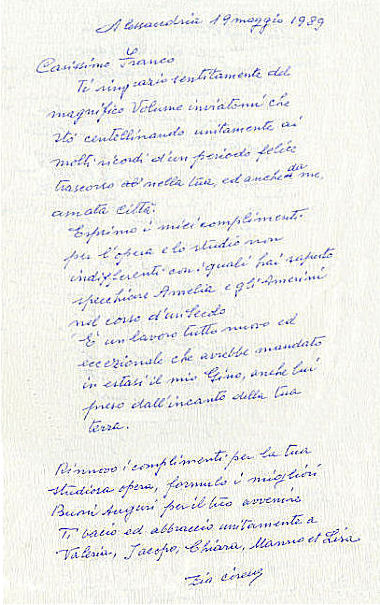 Alessandria 19 maggio 1989
Carissimo Franco
Ti ringrazio sentitamente del
magnifico Volume inviatomi che
sto centellinando unitamente ai
molti ricordi d'un periodo felice
trascorso nella tua, ed anche da me,
amata città.
Esprimo i miei complimenti
per l'opera e lo studio non
indifferenti con i quali hai saputo
specchiare Amelia e gli Amerini
nel corso d'un secolo
E' un lavoro tutto nuovo ed
eccezionale che avrebbe mandato
in estasi il mio Gino, anche lui
preso dall'incanto della tua
terra.
Rinnovo i complimenti per la tua
studiosa opera, formulo i migliori
Buoni Auguri per il tuo avvenire
Ti bacio ed abbraccio unitamente a
Valeria, Jacopo, Chiara, Manno et Lisa
Zia